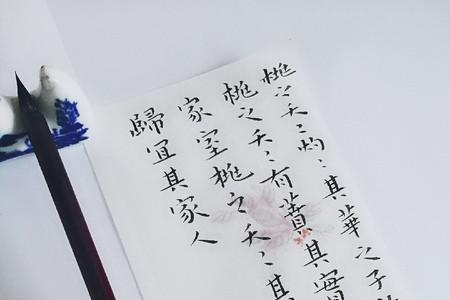 桃之夭〻灼〻其華之子
桃之夭〻有蕡其實
家室桃之夭〻其
歸宜其家人